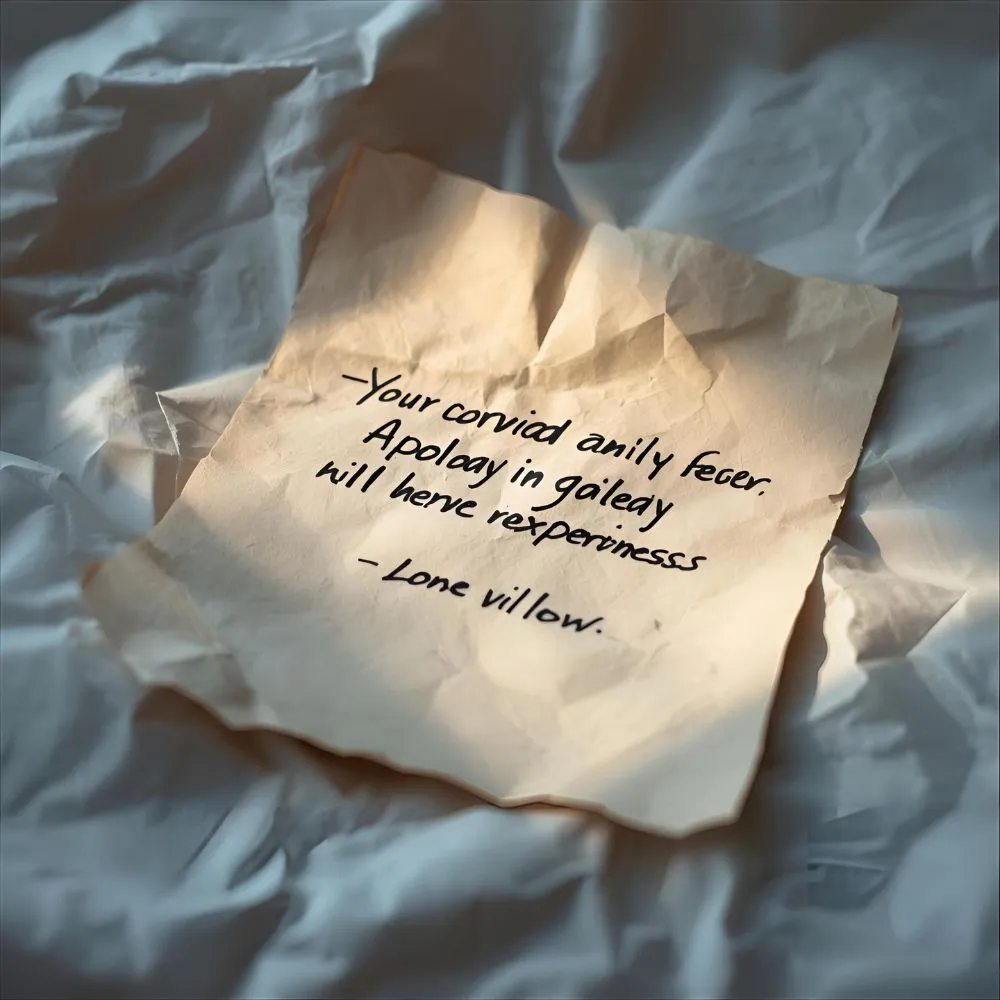 –Your corviod anily fecer.
Apoloay in gaileay
nill herve rexperinesss
– Lone villow.